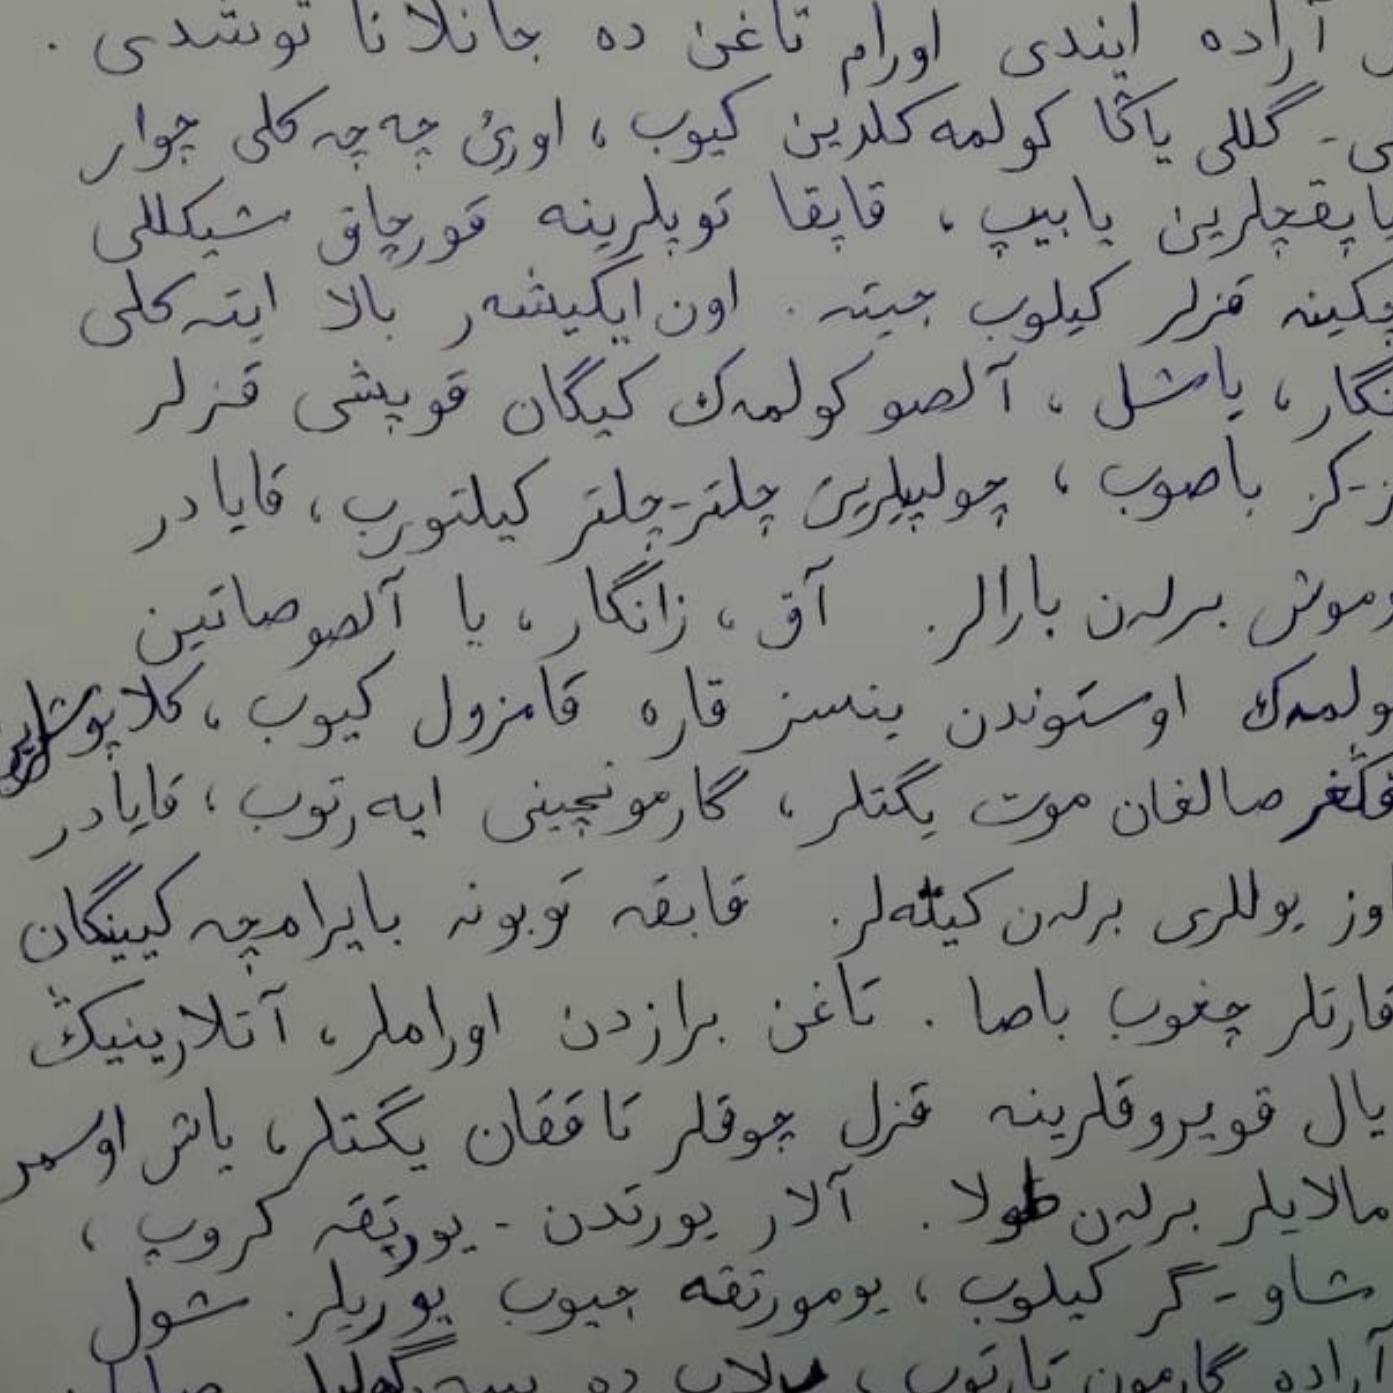 آراده ایندی اورام تاغن ده جانلانا توشدی .
گللی یاڭا کولمه کلرین کیوب ، اورئ چه چه کلی چوار
یاپقچلرین یابیپ ، قاپقا توپلرینه قورچاق شیکللی
کیلوب جیته . اون ایکیشهر بالا ایته کلی
یاشل ، آلصو کولمهك کیگان قوپشی قزلر
کز باصوب ، چولپیلرین چلتر-چلتر کیلتورب ، قایا در
برلهن بارالر . آق ، زانگار ، یا آلصو صاتین
اوستوندن ینسز قاره قامزول کیوب ،
صالغان موت یگتلر ، گارمونچینی ایه رتوب ، قایا در
اوز یوللری برلهن کیتهلر . قابقه توبونه بایرامچه کیینگان
قارتلر چغوب باصا . تاغن برازدن اوراملر ، آتلارینیڭ
یال قویروقلرینه قزل چوقلر تاققان یگتلر ، یاش اوسمر
مالایلر برلهن طولا . آلار یورتدن - یورتقه کروپ ،
شاو - گر کیلوب ، یومورتقه جیوب یوریلر . شول
آراده گارمون تارتوب ،